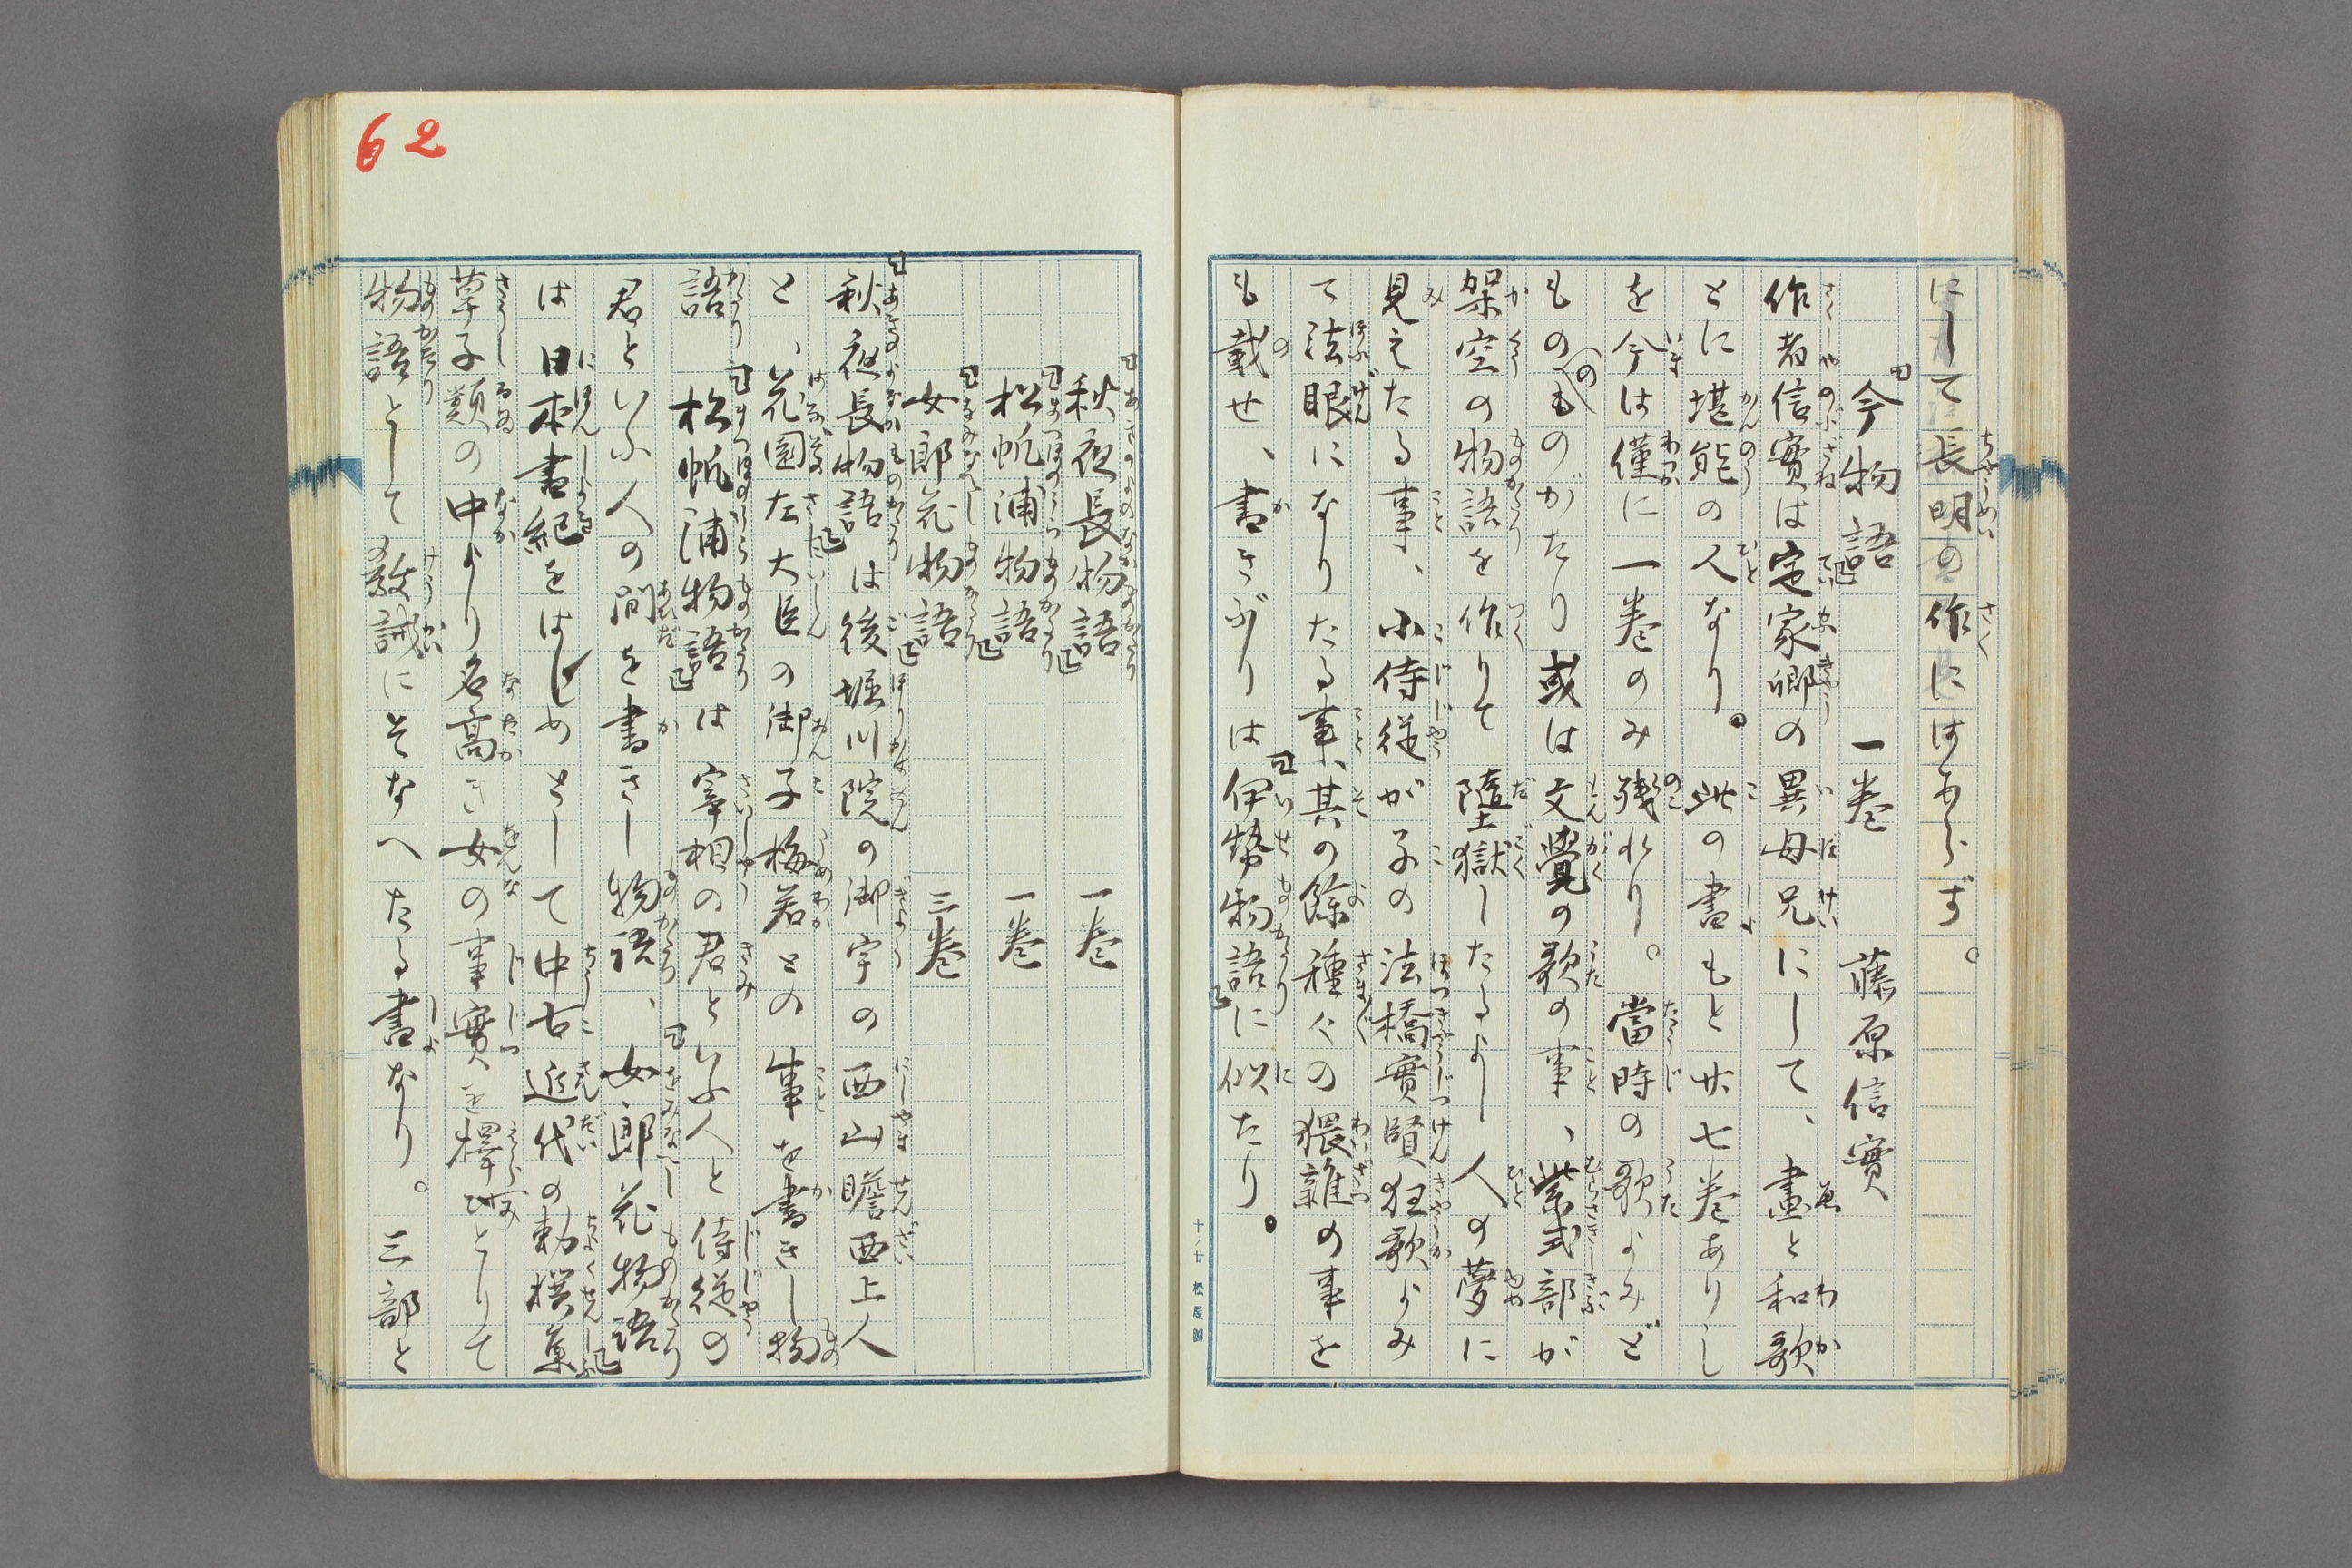 にして長明の作にはあらず。
『今物語』　一巻　藤原信實
作者信實は定家卿の異母兄にして、畫と和歌
とに堪能の人なり。此の書もと廿七巻ありし
を今は僅に一巻のみ残れり。當時の歌よみど
ものものがたり或は文覺の歌の事、紫式部が
架空の物語を作りて墮獄したるよし人の夢に
見えたる事、小侍従が子の法橋實賢狂歌よみ
て法眼になりたる事、其の餘種々の猥雜の事を
も載せ、書きぶりは『伊勢物語』に似たり。
十ノ廿 松屋製
『秋夜長物語』　一巻
『松帆浦物語』　一巻
『女郎花物語』　三巻
『秋夜長物語』は後堀川院の御宇の西山瞻西上人
と、花園左大臣の御子梅若との事を書きし物
語『松帆浦物語』は宰相の君といふ人と侍従の
君といふ人の間を書きし物語、『女郎花物語』
は日本書紀をはじめとして中古近代の勅撰集
草子類の中より名高き女の事實を擇びとりて
物語として教誡にそなへたる書なり。三部と
62